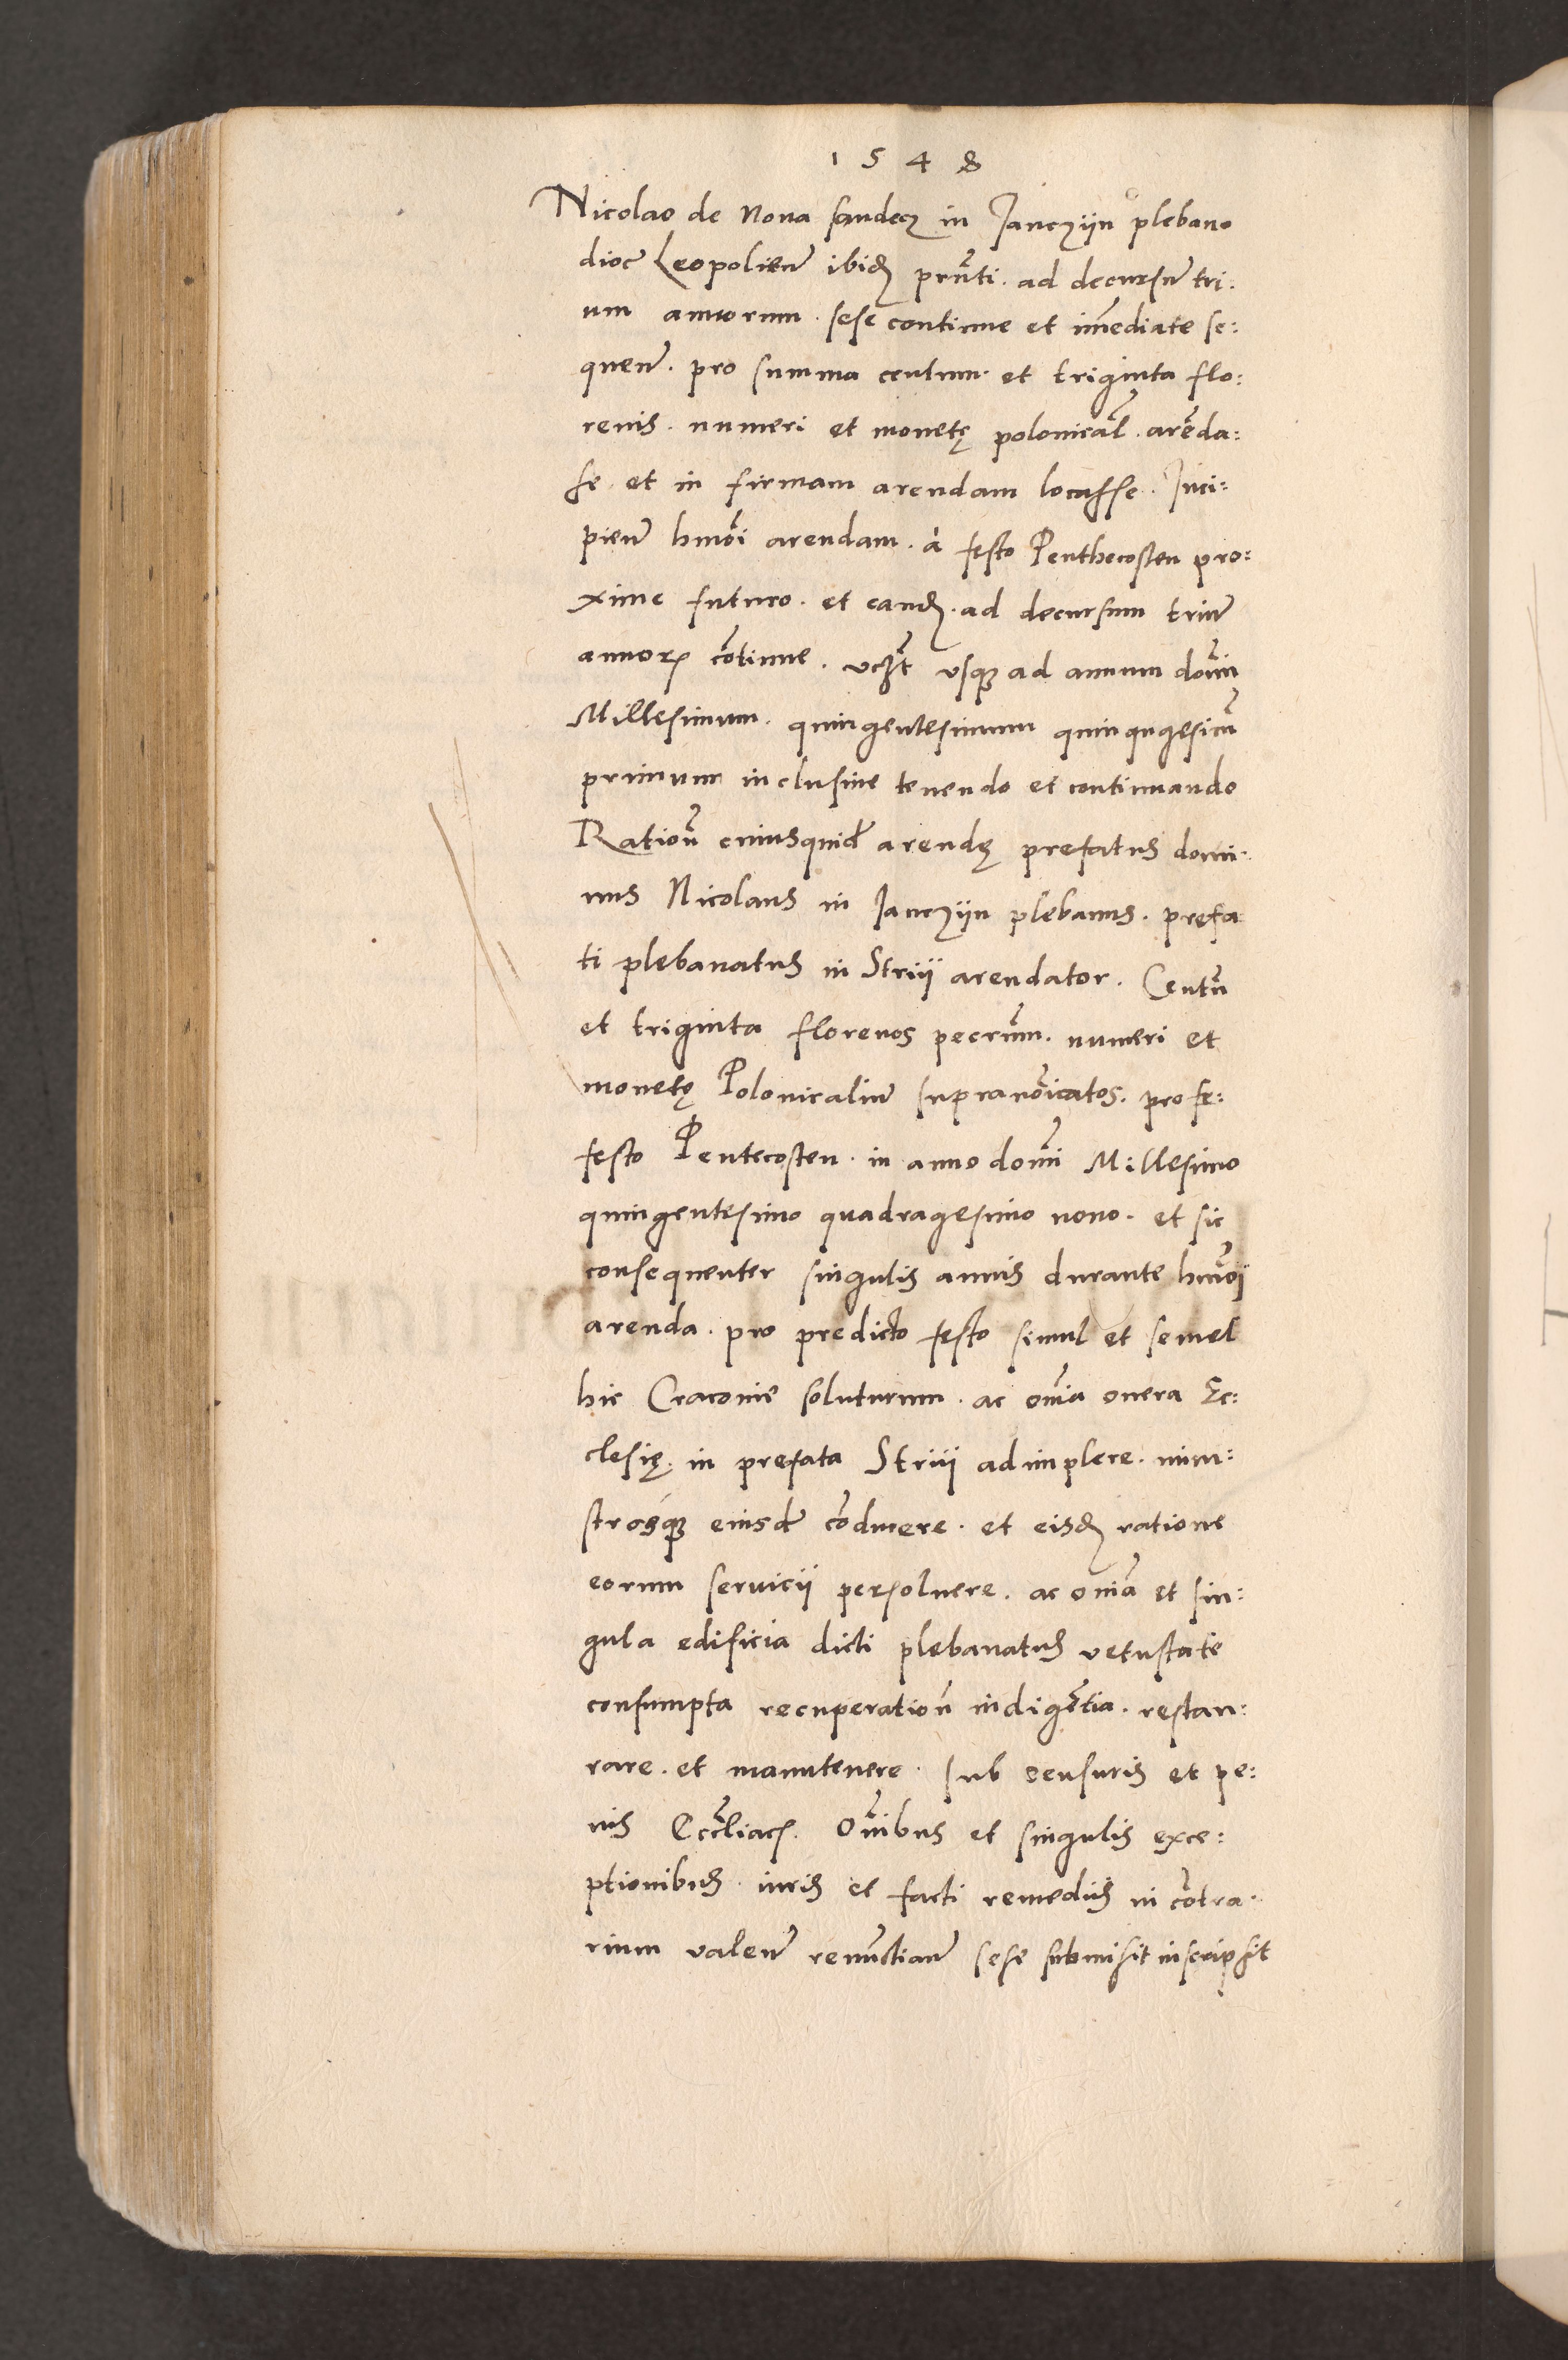 1548
Nicolao de Nova sandecz in Janczijn plebano
dioc̃ Leopolieñ ibid̨ pr̃nti. ad decursũ tri:
um annorum. sese continue et im̃ediate se:
queñ. pro summa centum. et triginta flo:
renis. numeri et monetę polonical̃. arẽda:
sse et in firmam arendam locasse. Inci:
pieñ hmõi arendam. à festo Penthecosten pro:
xime futuro. et eand̨. ad decursum triũ
annorꝝ cõtinue. vcz̃t usq₃ ad annum domĩ
Millesimum. quingentesimum quinqugesicũ
primum inclusiue tenendo et continuando
Ratioñ cuiusquid̃ arendę prefatus domi:
nus Nicolaus in Janczijn plebanus. prefa
ti plebanatus in Strÿ arendator. Centũ
et triginta florenos pecr̃um. numeri et
monetę Polonicaliũ supranõicatos. pro fe:
festo Pentecosten. in anno domĩ Millesimo
quingentesimo quadragesimo nono. et sic
consequenter singulis annis durante hmõj
arenda. pro predicto festo simul et semel
hic Cracouie soluturum. ac om̃ia onera Ec:
clesię. in prefata Strÿ adimplere. mini:
strosq₃ eiusd̃ cõducere. et eisd̨ ratione
eorum servicii persoluere. ac om̃ia et sin:
gula edificia dicti plebanatus vetustate
consumpta recuperatioñ indigẽtia. restau:
rare. et manutenere. sub censuris et pe:
nis Eccl̃iacꝭ. Om̃ibus et singulis exce:
ptionibus. iuris et facti remediis in cõtra:
rium valeñ renũctiañ sese submisit inscripsit